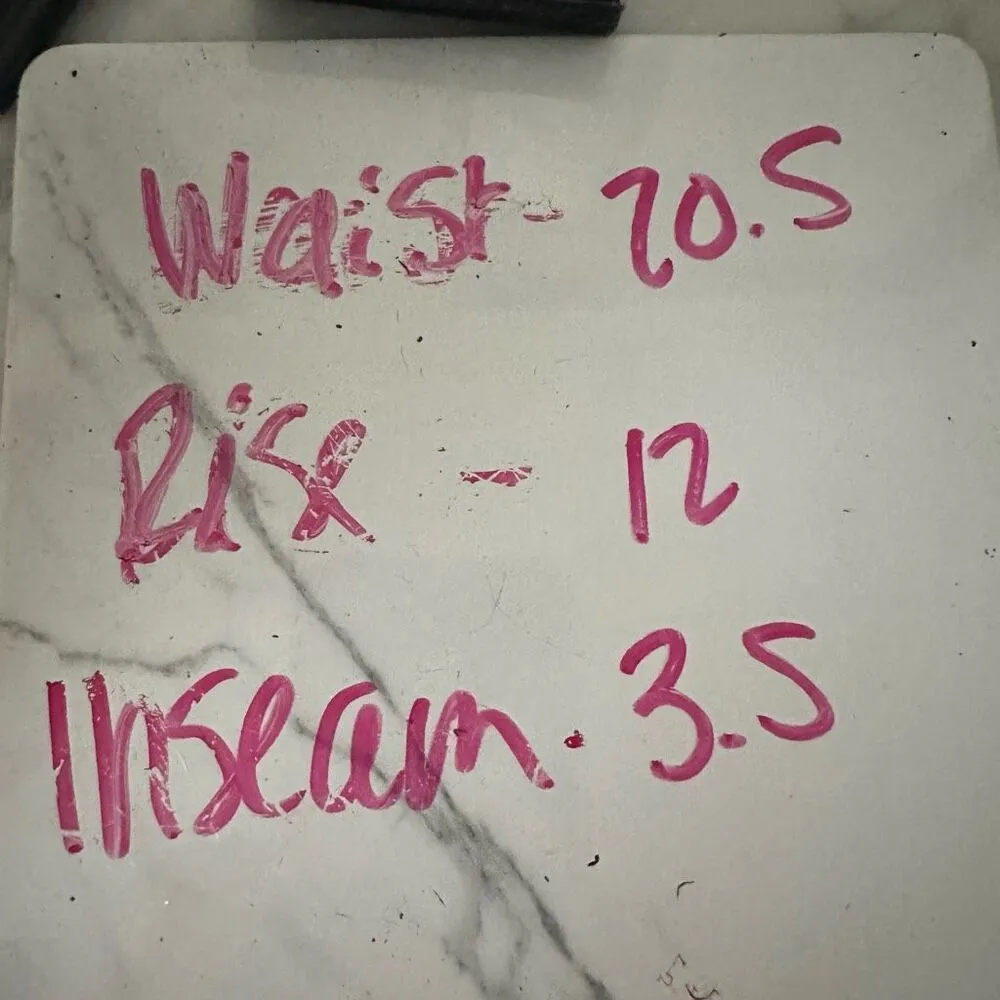 Waist - 20.5
Rise - 12
Inseam . 3.5